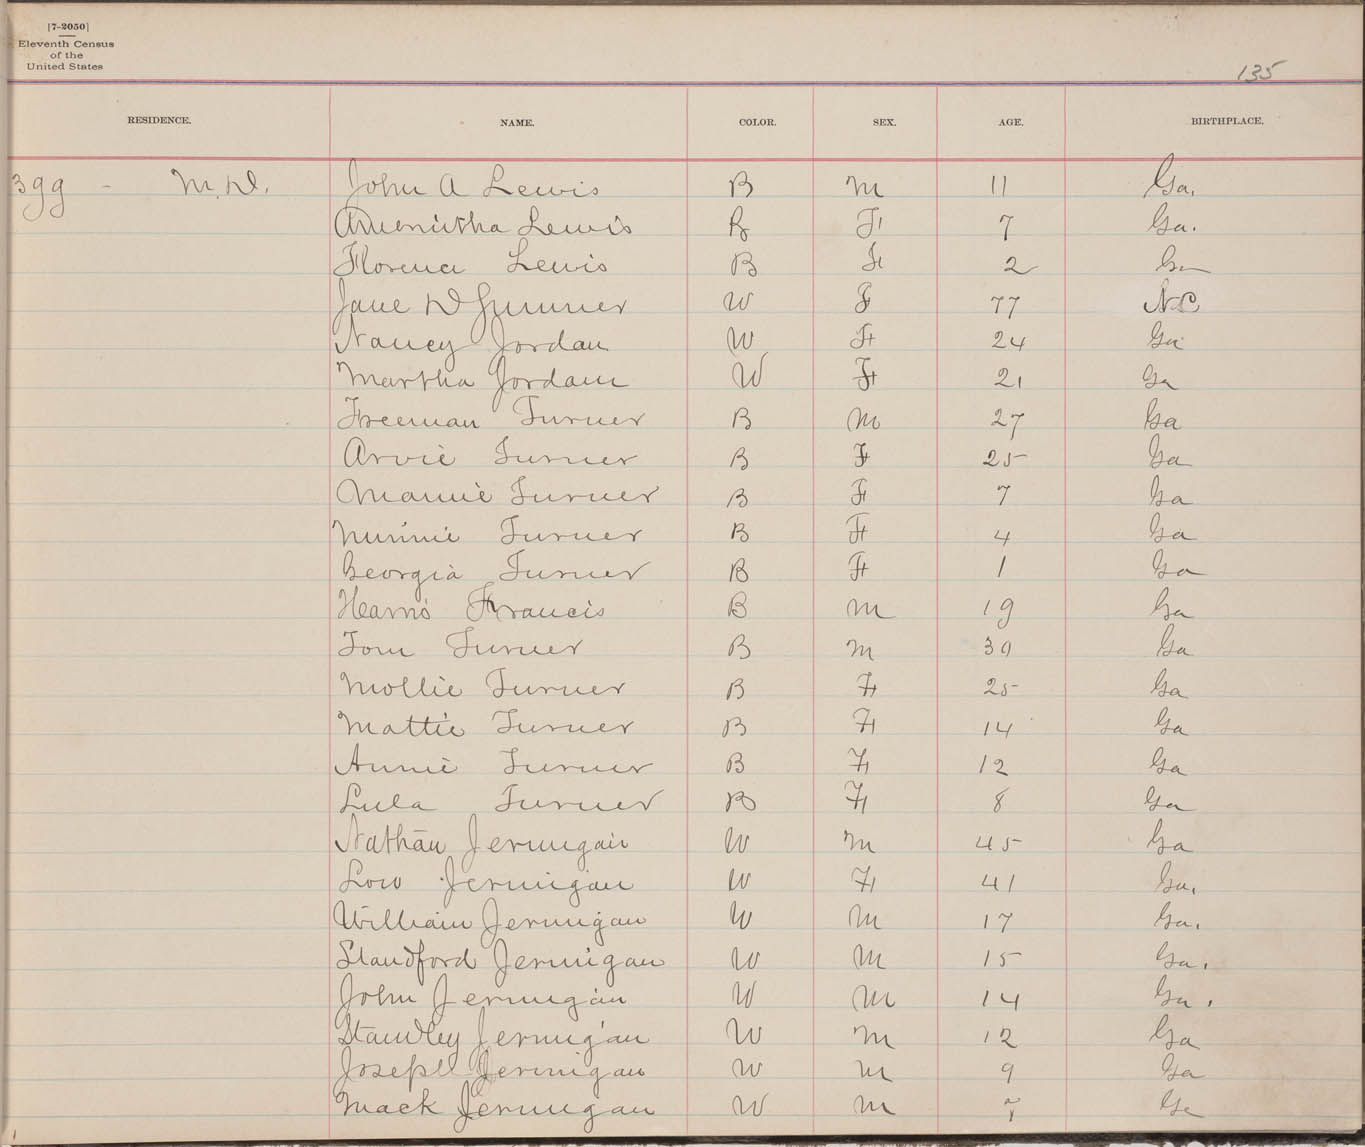 [7-2050]
Eleventh Census
of the
United States
135
RESIDENCE. NAME. COLOR. SEX. AGE. BIRTHPLACE.
399 - M.D. John A Lewis B M 11 Ga.
Lewis B F 7 Ga.
Florence Lewis B F 2 Ga
Jane D W F 77 N.C.
Nancy Jordan W F 24 Ga
Martha Jordan W F 21 Ga
Freeman Turner B M 27 Ga
Arvie Turner B F 25 Ga
Mamie Turner B F 7 Ga
Minnie Turner B F 4 Ga
Georgia Turner B F 1 Ga
Francis B M 19 Ga
Tom Turner B M 30 Ga
Mollie Turner B F 25 Ga
Mattie Turner B F 14 Ga
Annie Turner B F 12 Ga
Lula Turner B F 8 Ga
Nathan Jernigan W M 45 Ga
Low Jernigan W F 41 Ga.
William Jernigan W M 17 Ga.
Standford Jernigan W M 15 Ga.
John Jernigan W M 14 Ga.
Standley Jernigan W M 12 Ga
Joseph Jernigan W M 9 Ga
Mack Jernigan W M 7 Ga